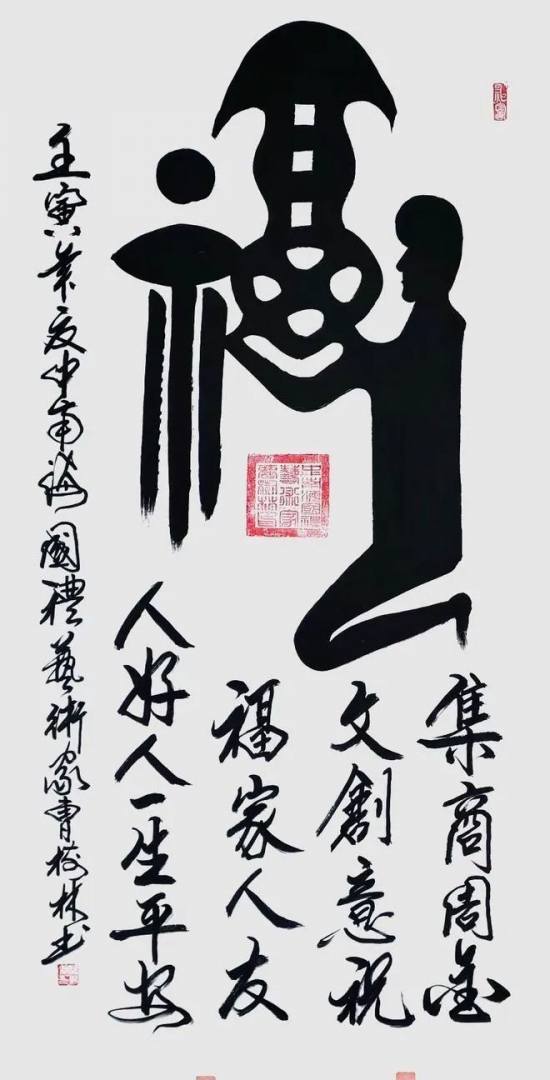 福
集商周金
文創意祝
福家人友
人好人一生平安
壬寅年夏中南海國禮藝術家曹樹林书